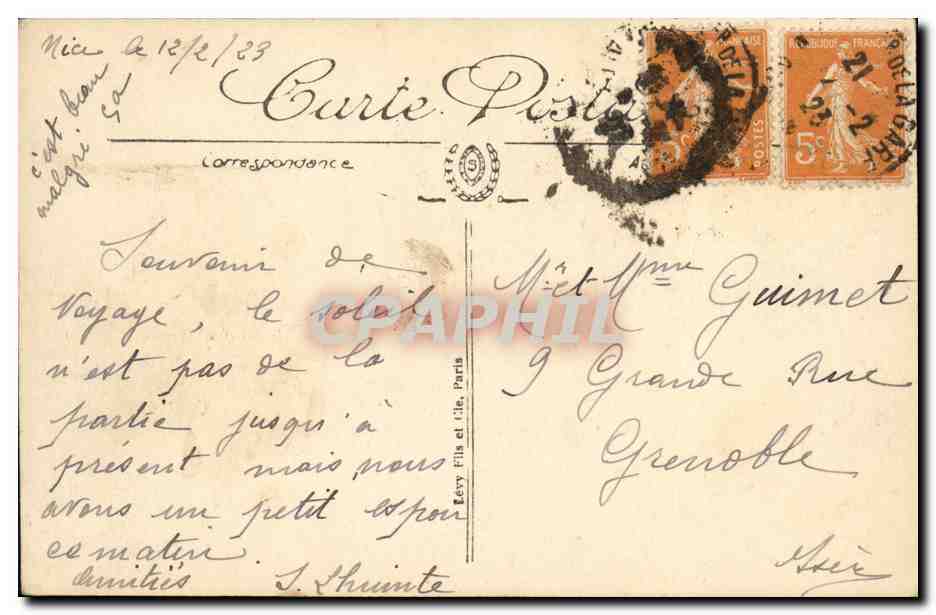 Nice le 12/2/23
c'est beau
malgré ça
Carte Postale
Correspondance
S
Souvenir de
Voyage, le soleil
n'est pas de la
partie jusqu'à
présent mais nous
avons un petit espoir
ce matin.
Amitiés
Lévy Fils et Cie, Paris
CPAPHIL
Mr et Mme Guimet
9 Grande Rue
Grenoble
Isère
POSTES
REPUBLIQUE FRANÇAISE
5c
P DE LA GARE
21
1-2
23